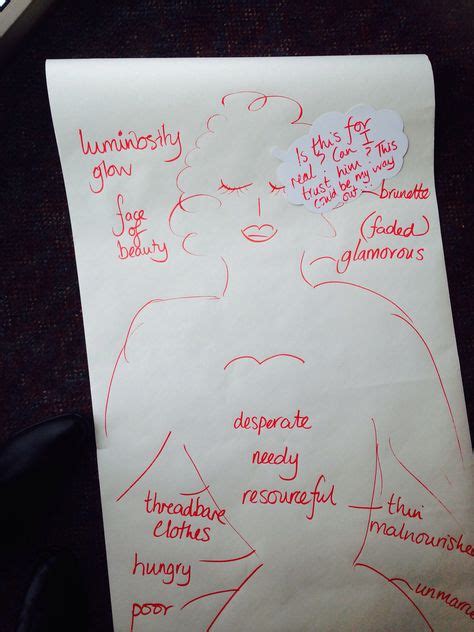 luminosity
glow
face
of
beauty
Is this for
real? Can I
trust him? This
could be my way
out...
brunette
(faded)
glamorous
desperate
needy
resourceful
threadbare
clothes
hungry
poor
thin
malnourished